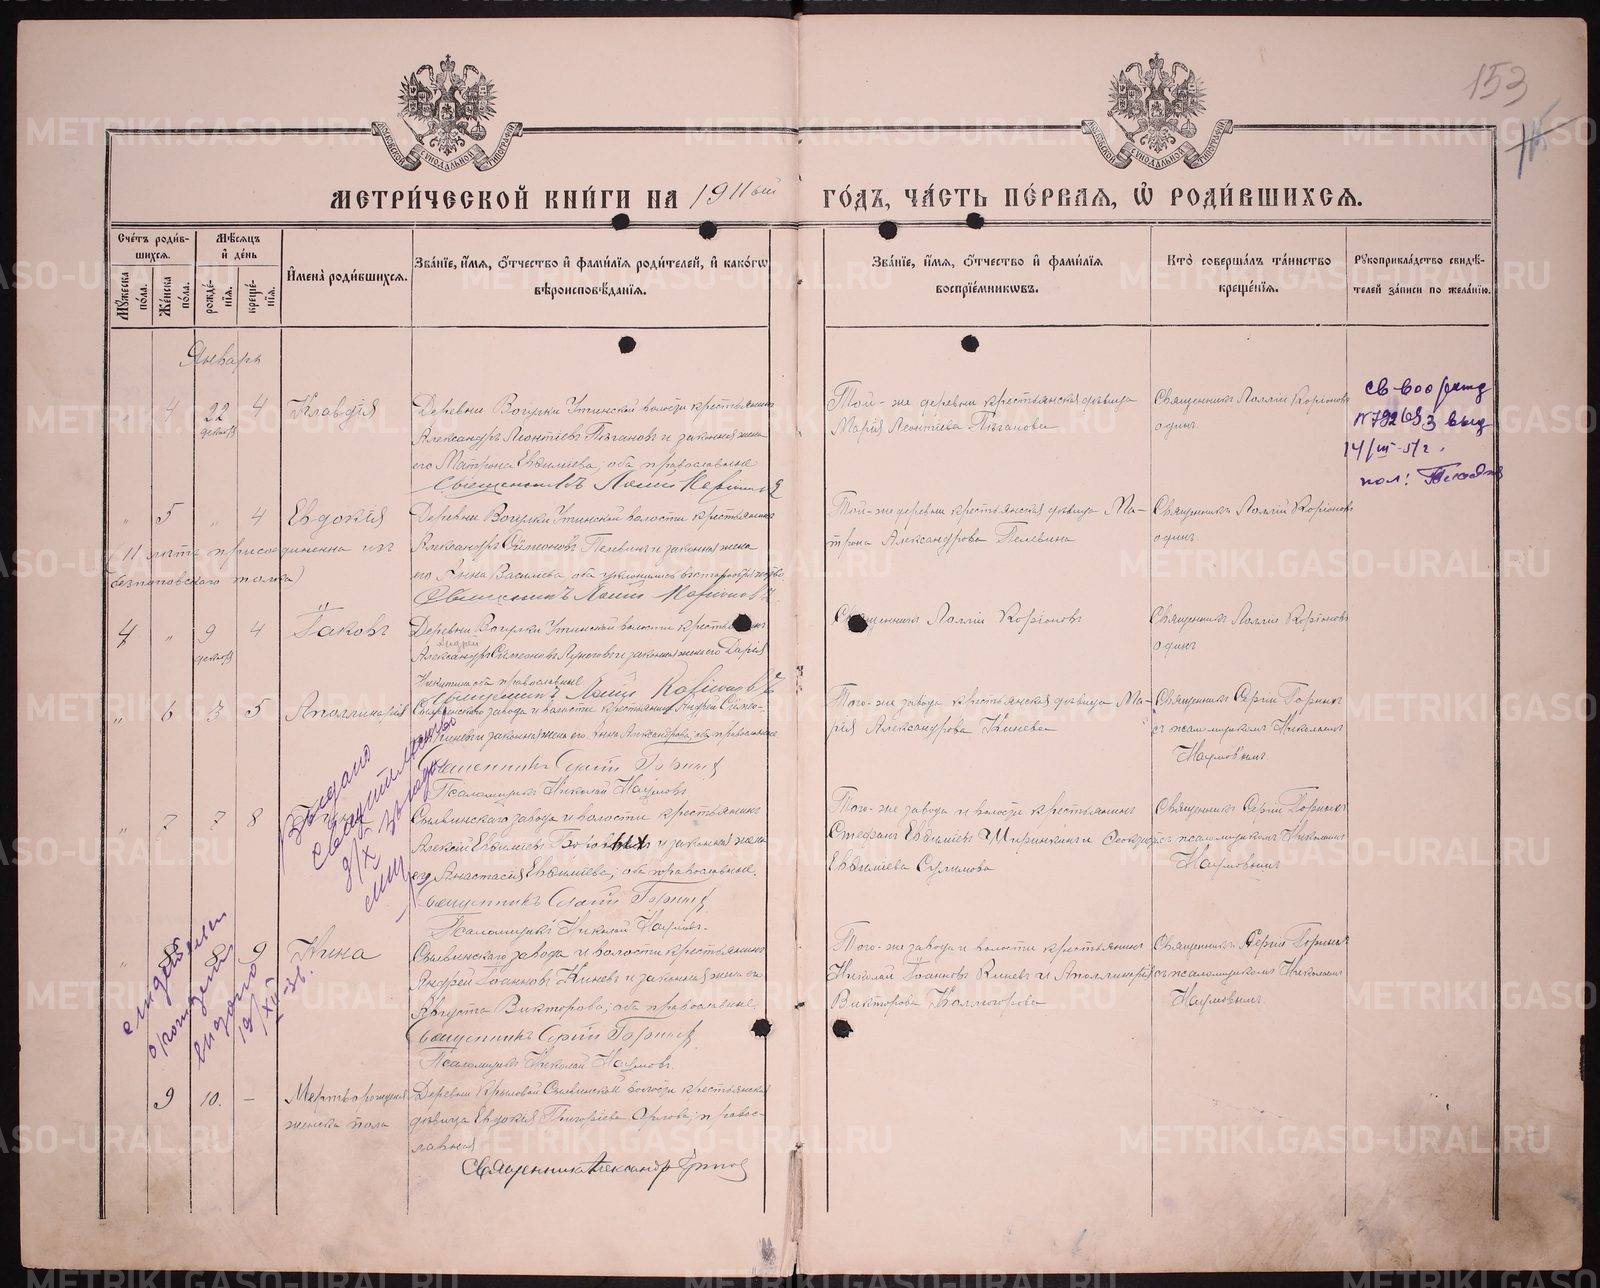 153
МОСКОВСКОЙ СѴНОДАЛЬНОЙ ТИПОГРАФІИ
МОСКОВСКОЙ СѴНОДАЛЬНОЙ ТИПОГРАФІИ
МЕТРИ́ЧЕСКОЙ КНИ́ГИ НА 1911ый ГО́ДЪ, ЧА́СТЬ ПЕ́РВАЯ, Ѡ҆ РОДИ́ВШИХСЯ.
Сче́тъ роди́в-
шихся.
Мꙋ́жеска по́ла.
Же́нска по́ла.
Мѣ́сяцъ
и҆ де́нь
рожде́-
нїя.
креще́-
нїя.
И҆мена̀ роди́вшихся.
Зва́нїе, и҆́мя, ѻ҆́тчество и҆ фамı́лїя роди́телей, и҆ како́гѡ
вѣроисповѣ́данїя.
Зва́нїе, и҆́мя, ѻ҆́тчество и҆ фамı́лїя
воспрїе́мникѡвъ.
Кто̀ соверша́лъ та́инство
креще́нїя.
Рꙋкоприкла́дство свидѣ́-
телей за́писи по жела́нїю.
Январь
4 22 декабря 4 Клавдія
Деревни Вогулки Уткинской волости крестьянинъ
Александръ Леонтіевъ и законная жена
его Матрона Евѳиміева, оба православные
Священникъ Лоллій Коріоновъ
Той-же деревни крестьянская дѣвица
Марія Леонтіева
Священникъ Лоллій Коріоновъ
одинъ.
св-во о рожд
14/III-51г.
" 5 " 4 Евдокія
(11 лѣтъ присоединенна изъ
безпоповскаго толка)
Деревни Вогулки Уткинской волости крестьянинъ
Александръ Симеоновъ Пелевинъ и законная жена
его Анна Васильева, оба
Священникъ Лоллій Коріоновъ
Той-же деревни крестьянская дѣвица Ма-
трона Александрова Пелевина
Священникъ Лоллій Коріоновъ
одинъ.
4 " 9 декабря 4 Іаковъ
Деревни Вогулки Уткинской волости крестьянинъ
Андрей
Александръ Симеоновъ и законная жена его Дарія
Никитина оба православные
Священникъ Лоллій Коріоновъ
Священникъ Лоллій Коріоновъ
Священникъ Лоллій Коріоновъ
одинъ
" 6 3 5 Аполлинарія
Сылвинскаго завода и волости крестьянинъ Андрей
Киневъ и законная жена его Анна Александрова, оба православные
Священникъ Сергій Горныхъ
Псаломщикъ Николай Наумовъ
Того-же завода крестьянская дѣвица Ма-
рія Александрова Кинева
Священникъ Сергій Горныхъ
съ псаломщикомъ Николаемъ
Наумовымъ
Выдано
свидѣтельство
3/X
" 7 7 8
Сылвинскаго завода и волости крестьянинъ
Алексій Евѳиміевъ и законная жена
его Анастасія Евѳиміева, оба православные.
Священникъ Сергій Горныхъ
Псаломщикъ Николай Наумовъ.
Того-же завода и волости крестьянинъ
Стефанъ Евѳиміевъ Ширинкинъ
Евѳиміева Сулимова
Священникъ Сергій Горныхъ
съ псаломщикомъ Николаемъ
Наумовымъ
" 8 8 9 Нина
Сылвинскаго завода и волости крестьянинъ
Андрей Іоанновъ Киневъ и законная жена его
Августа Викторова, оба православные
Священникъ Сергій Горныхъ
Псаломщикъ Николай Наумовъ.
Того-же завода и волости крестьянинъ
Николай Іоанновъ Киневъ и Аполлинарія
Викторова Колмогорова
Священникъ Сергій Горныхъ
съ псаломщикомъ Николаемъ
Наумовымъ.
о рождении
выдано
9 10. — Мертворожденная
женска пола
Деревни Крыловой Сылвинской волости крестьянская
дѣвица Евдокія Григоріева Орлова, право-
славная
Священникъ Александръ